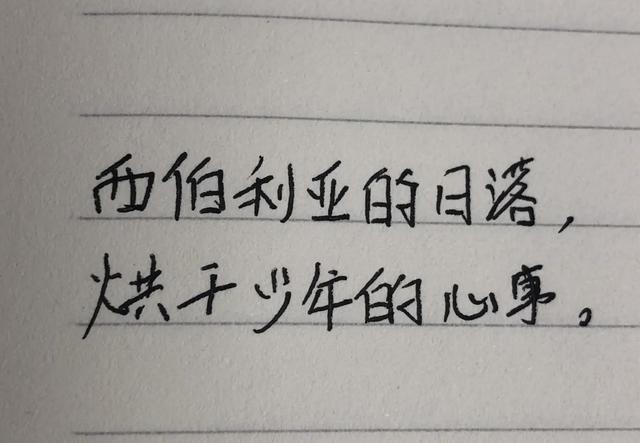 西伯利亚的日落,
烘干少年的心事。